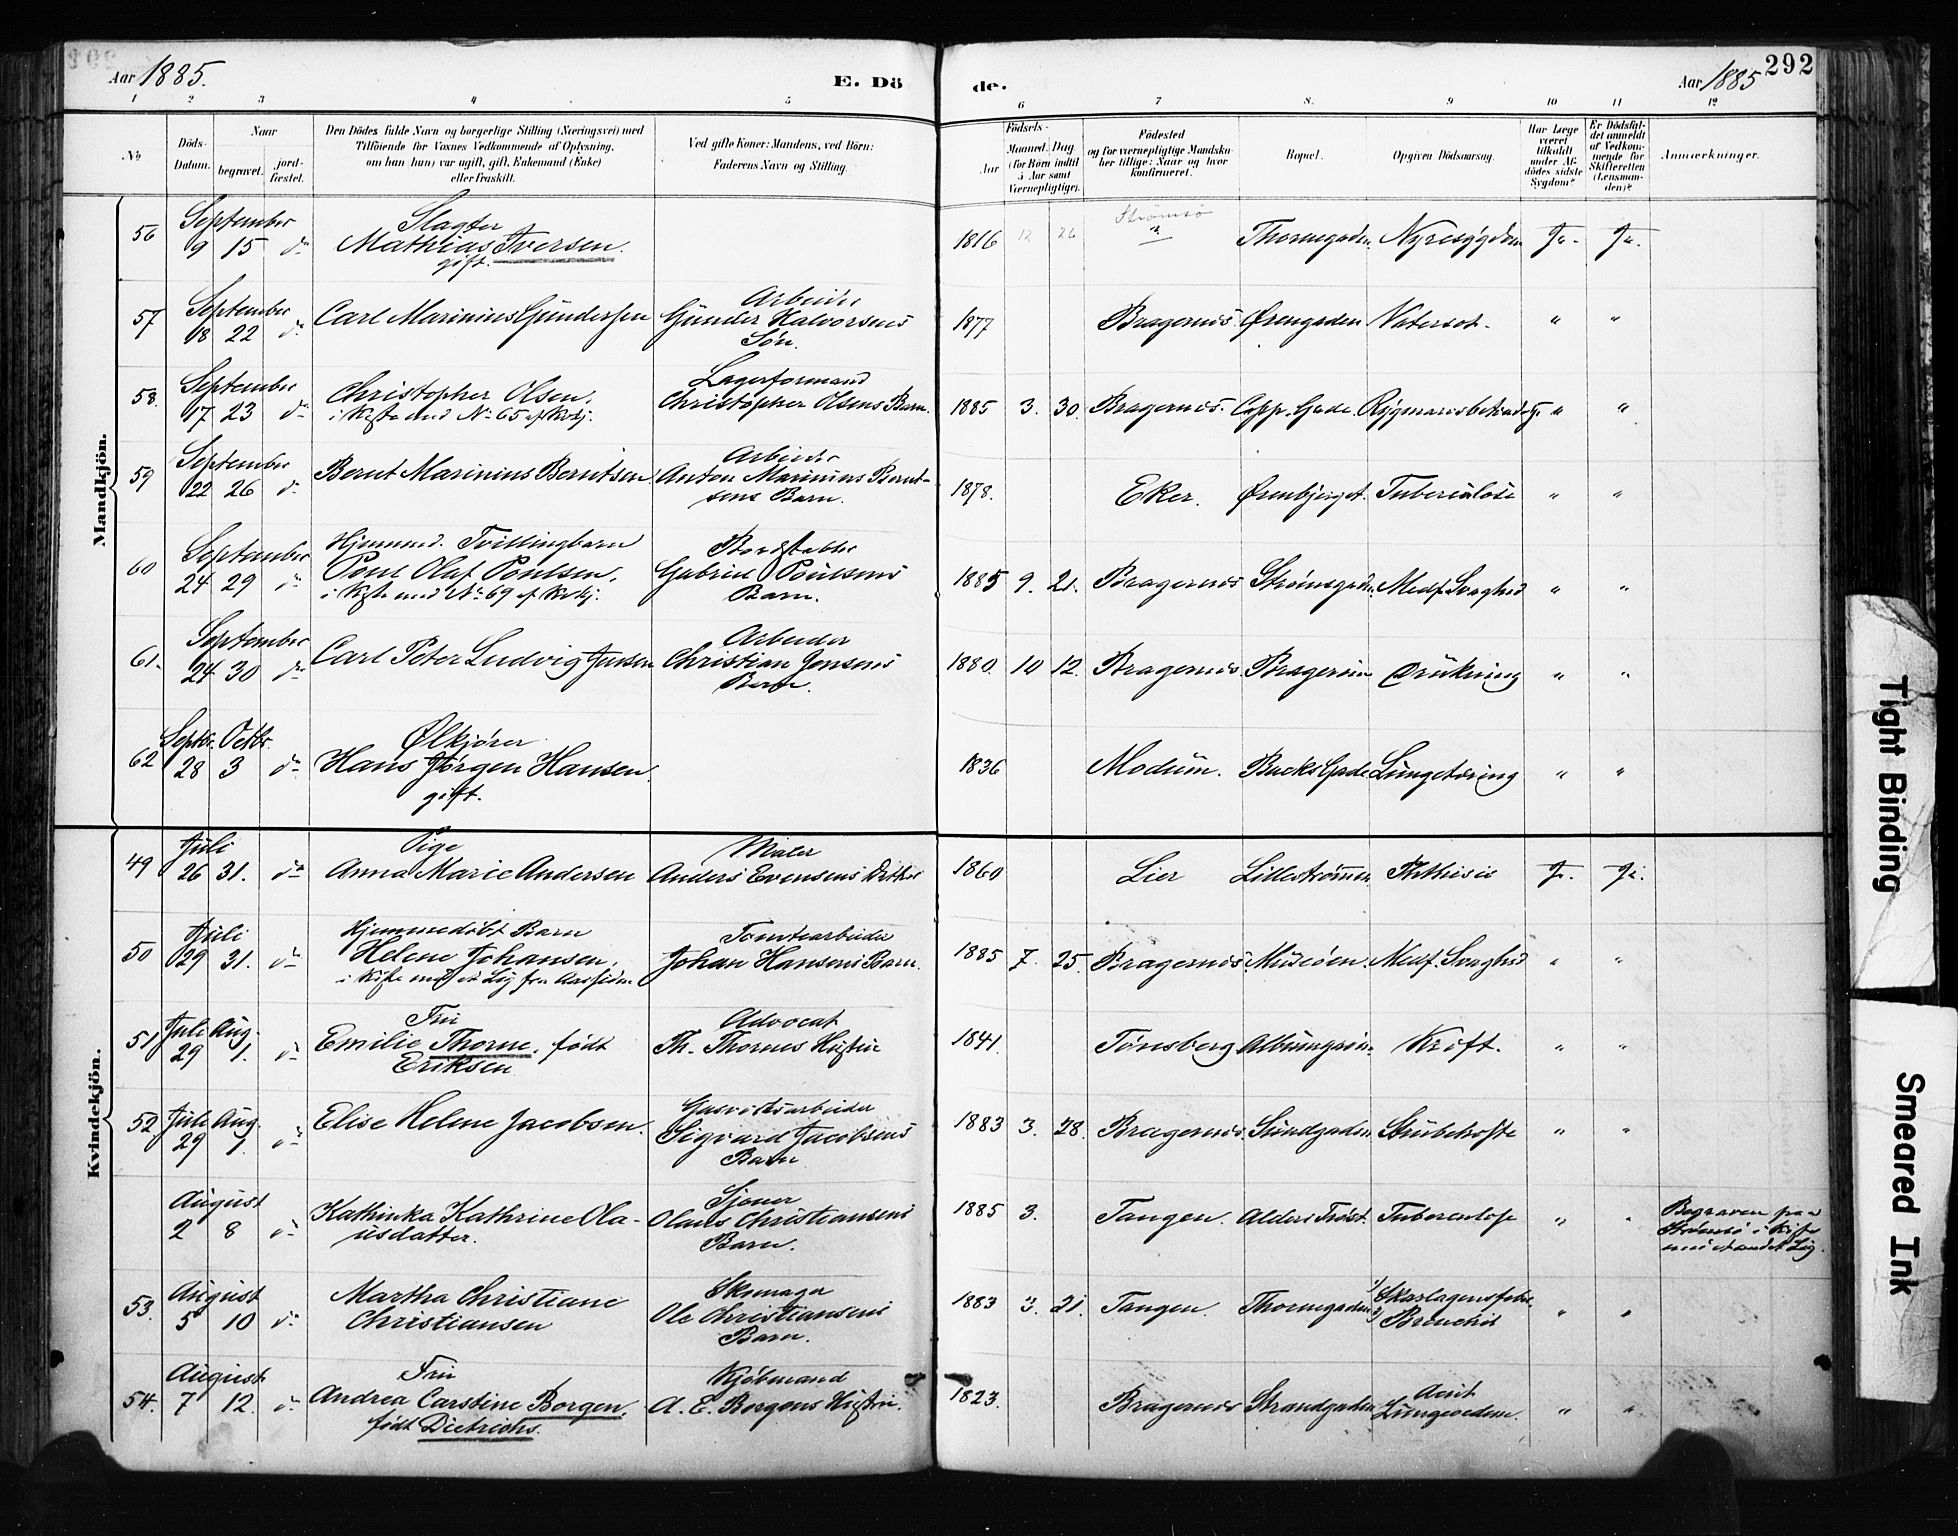 Aar 1885.
E. Dö
de.
Aar 1885
292
1 2 3 4 5 6 7 8. 9 10 11 12
No
Döds-Datum.
Naar
begravet.
jord-fæstet.
Den Dödes fulde Navn og borgerlige Stilling (Næringsvei) med
Tilföiende for Voxnes Vedkommende af Oplysning,
om han (hun) var ugift, gift, Enkemand (Enke)
eller fraskilt.
Ved gifte Koner: Mandens, ved Börn:
Faderens Navn og Stilling.
Födsels-
Aar
Maaned. Dag.
(for Börn indtil
5 Aar samt
Værnepligtige).
Födested
og for værnepligtige Mandskaber tillige: Naar og hvor
konfirmeret.
Bopæl.
Opgiven Dödsaarsag.
Har Læge
været
tilkaldt
under Afdödes sidste
Sygdom?
Er Dödsfaldet anmeldt
af Vedkommende for
Skifteretten
(Lensmanden)?
Anmærkninger.
Mandkjön.
56 September 9 15 do Slagter Mathias Iversen. gift. 1816 12 26 Strømsö Thornegaden. Nyresygdom Ja. Ja.
57 September 18 22 do Carl Marinius Gundersen Arbeider Gunder Halvorsens Søn. 1877 Bragernes Ørengaden Vatersot. " "
58. September 17 23 do Christopher Olsen, i Kiste med No 65 af Kvkj. Lagerformand Christopher Olsens Barn. 1885 3. 30. Bragernes. Capp. Gade. " "
59 September 22 26 do Bernt Marinius Berntsen Arbeider Anton Marinius Berntsens Barn. 1878. Eker. Ørenbjerget. Tuberculose " "
60 September 24 29 do Hjemmed. Tvillingbarn Poul Olaf Poulsen, i Kiste med No 69 af Kvkj. Bordstabler Gabriel Poulsens Barn. 1885 9. 21. Bragernes Strømsgaden. Medf. Svaghed " "
61. September 24 30 do Carl Peter Ludvig Jensen Arbeider Christian Jensens Barn. 1880. 10 12. Bragernes. Drukning " "
62 Septbr. Octbr. 28 3 do Ølkjører Hans Jørgen Hansen gift. 1836 Modum. Bucks Gade Lungetæring " "
Kvindekjön.
49 Juli 26 31. do Pige Anna Marie Andersen Maler Anders Evensens Datter 1860 Lier Lillestrømmen Phthisis Ja. Ja.
50 Juli 29 31. do Hjemmedøbt Barn Helene Johansen, i Kiste med et Lig fra Aassiden Tomtearbeider Johan Hansens Barn. 1885 7. 25. Bragernes Medf. Svaghed " "
51 Juli Aug. 29 1. do Fru Emilie Thorne, født Eriksen Advocat Th. Thornes Hustru 1841. Tønsberg Kræft. " "
52 Juli Aug. 29 1. do Elise Helene Jacobsen. Gasværksarbeider Sigvard Jacobsens Barn 1883 3. 28. Bragernes. Strandgaden Strubehoste " "
August 2 8 do Kathinka Kathrine Olausdatter. Sjouer Olaus Christiansens Barn. 1885 3. Tangen. Alders Trøst. Tuberculose " " Begraven paa Strømsö i Kiste med et andet Lig.
53. August 5 10 do Martha Christiane Christiansen Skomager Ole Christiansens Barn. 1883 3. 21. Tangen Thornegaden 1) Skarlagensfeber 2) Bronchit " "
54. August 7 12. do Fru Andrea Carstine Borgen, født Dietrichs. Kjøbmand A. E. Borgens Hustru. 1823. Bragernes Strandgaden Acut Lungeoedem. " "
Tight Binding
Smeared Ink